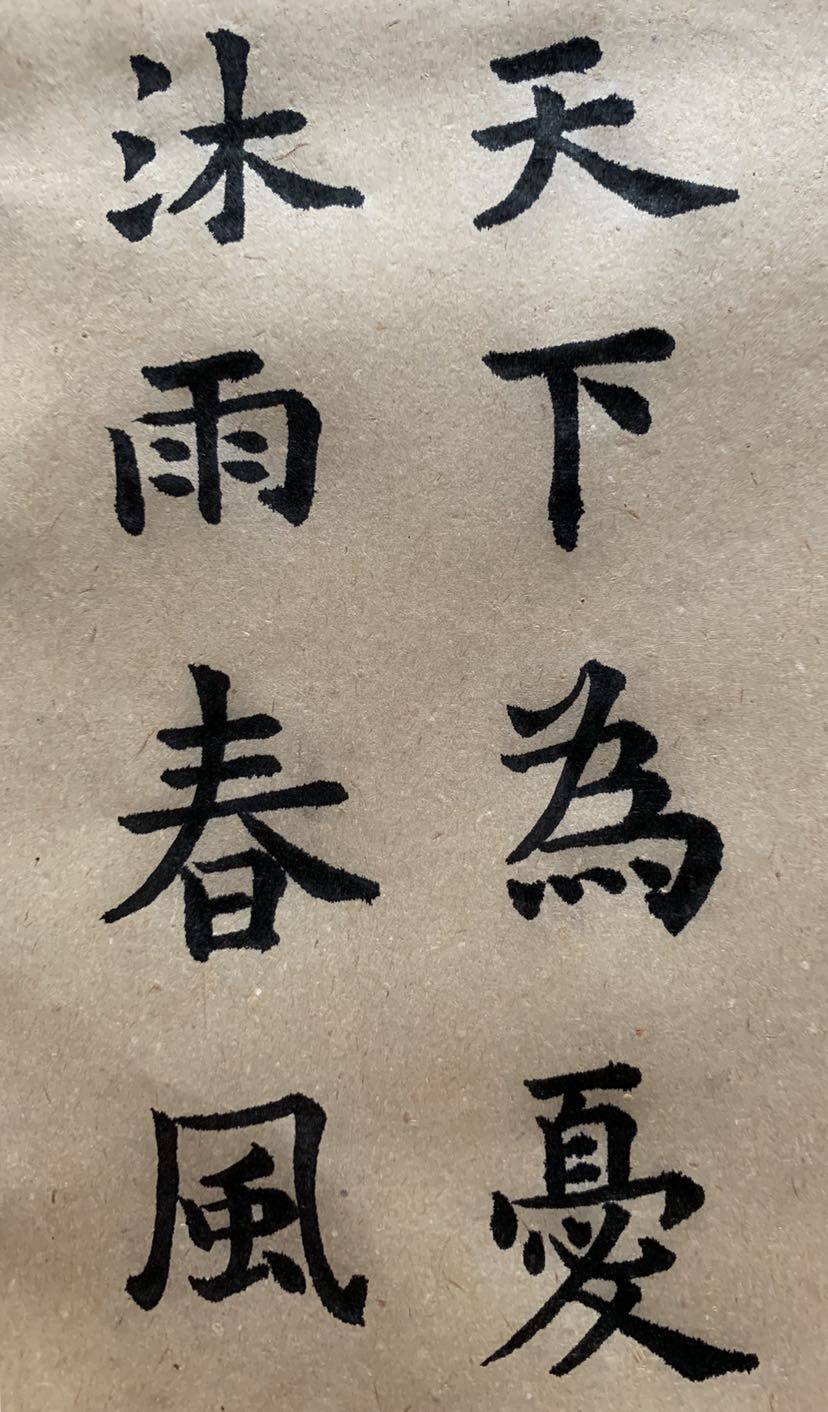 天下為憂
沐雨春風